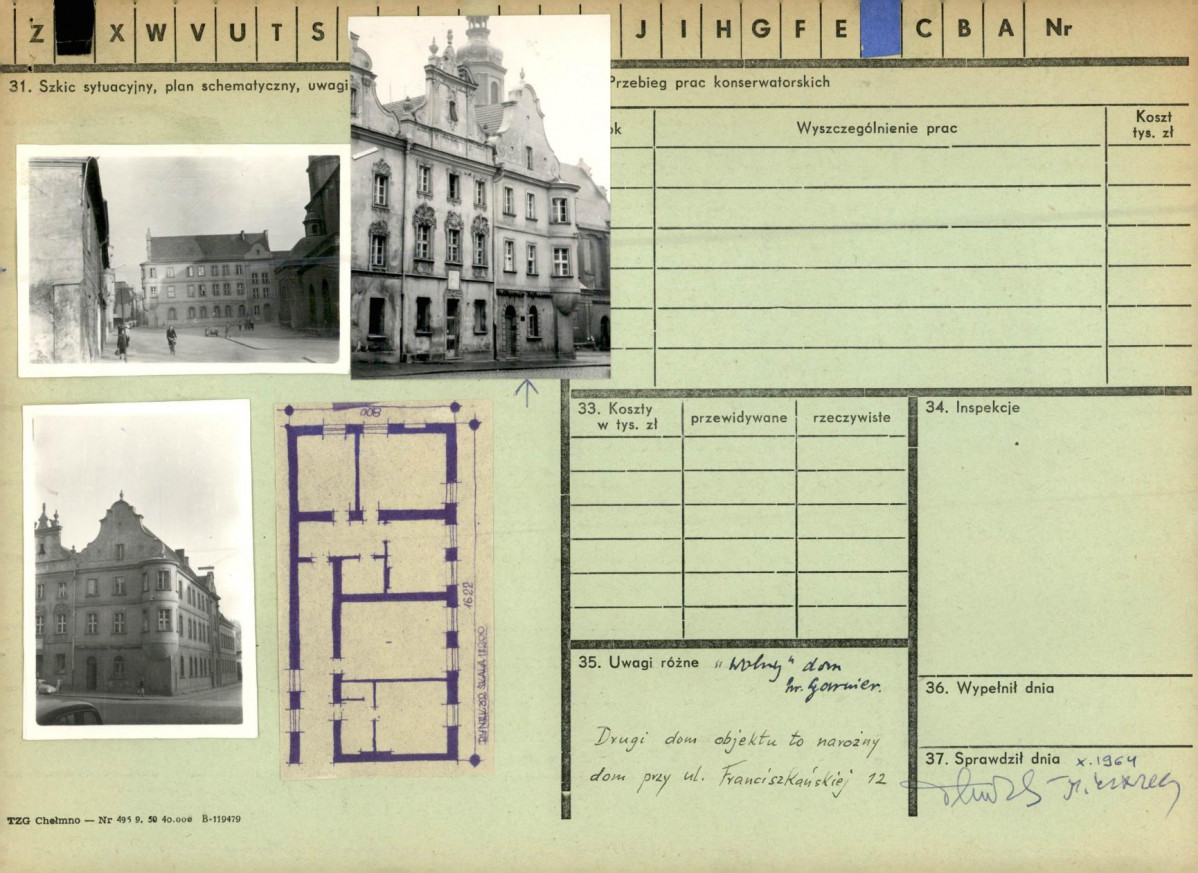 Z X W V U T S J I H G F E C B A Nr
31. Szkic sytuacyjny, plan schematyczny, uwagi
Przebieg prac konserwatorskich
ok
Wyszczególnienie prac
Koszt
tys. zł
800
1622
RYNEK 32 SKALA 1:200
33. Koszty
w tys. zł
przewidywane
rzeczywiste
34. Inspekcje
35. Uwagi różne „Wolny" dom
hr. Garnier.
Drugi dom objektu to narożny
dom przy ul. Franciszkańskiej 12
36. Wypełnił dnia
37. Sprawdził dnia x.1964
TZG Chełmno — Nr 495 9. 59 40.000 B-119479